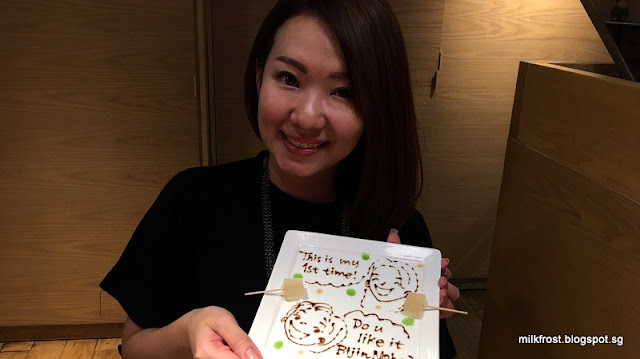 This is my
1st time!
Do u
like it
milkfrost.blogspot.sg